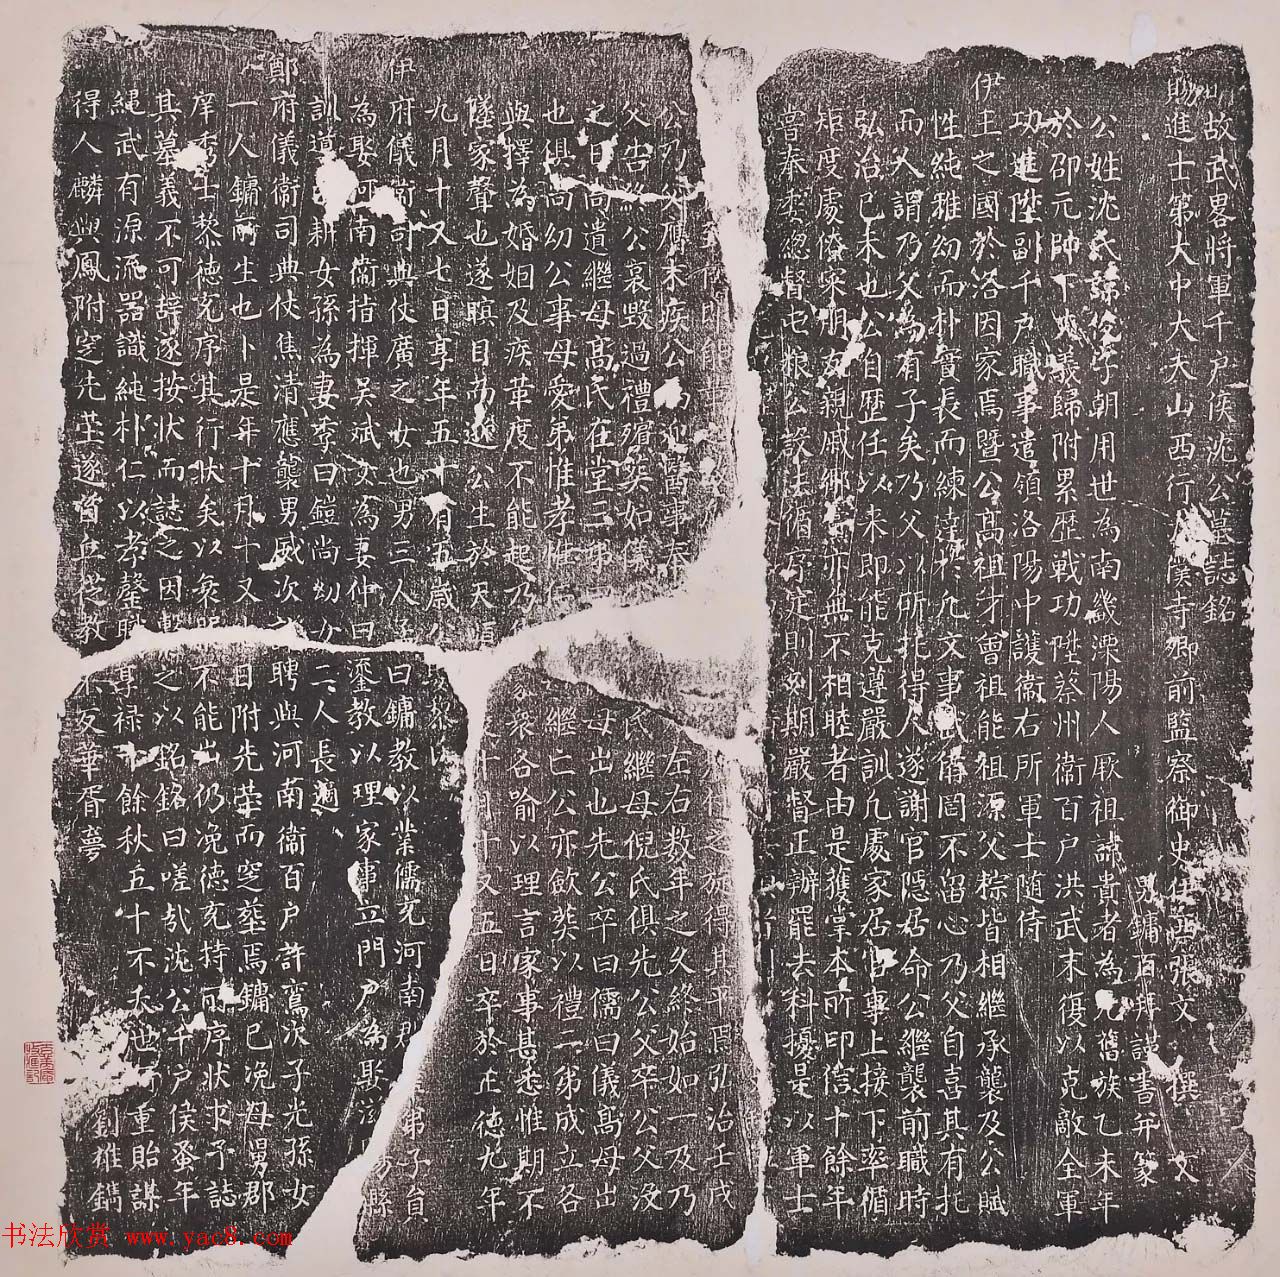 明故武畧將軍千户侯沈公墓誌銘
賜進士第大中大夫山西行太僕寺卿前監察御史仕西張文 撰文
男鏞百拜謹書并篆
公姓沈氏諱俊字朝用世為南畿溧陽人厥祖諱貴者為元舊族乙未年
於邵元帥下慕義歸附累歷戰功陞蔡州衞百户洪武末復以克敵全軍
功進陞副千户職事遣領洛陽中護衞右所軍士随侍
伊王之國於洛因家焉暨公髙祖才曾祖能祖源父粽皆相継承襲及公賦
性純雅幼而朴實長而練達於凡文事武備罔不留心乃父自喜其有托
而人謂乃父為有子矣乃父以所托得人遂謝官隱居命公継襲前職時
弘治己未也公自歷任以来即能克遵嚴訓凡處家居官事上接下率循
矩度處僚寀朋友親戚鄉黨亦無不相睦者由是獲掌本所印信十餘年
嘗奉委總督屯粮公設法循序定則刻期嚴督正辦罷去科擾是以軍士
之旋得其平焉弘治壬戌
公乃父膺末疾公為迎醫事奉左右数年之久終始如一及乃
父告終公哀毀過禮殯葬如儀 氏継母倪氏俱先公父卒公父沒
之日尚遺継母髙氏在堂三弟 母出也先公卒曰儒曰儀髙母出
也俱尚幼公事母愛弟惟孝惟 継亡公亦歛葬以禮二弟成立各
與擇為婚姻及疾革度不能起乃 衆各喻以理言家事甚悉惟期不
墜家聲也遂瞑目而逝公生於天順 十又五日卒於正德九年
九月十又七日享年五十有五歲
伊府儀衞司典仗廣之女也男三人 曰鏞教以業儒充河南郡 弟子員
為娶河南衞指揮吳斌女為妻仲曰鎏教以理家事立門户為娶 縣
訓導 耕女孫為妻季曰鎧尚幼女二人長適
鄭府儀衞司典仗焦清應襲男威次許聘與河南衞百户許鸞次子光孫女
一人鏞所生也卜是年十月十又 日附先塋而窆塟焉鏞已浼母舅郡
庠秀士黎德充序其行狀矣以衰 不能出仍浼德充持所序状求予誌
其墓義不可辞遂按状而誌之因繫之以銘銘曰嗟㢤沈公千户侯蚤年
繩武有源流器識純朴仁以孝罄賦享禄 餘秋五十不夭世所重貽謀
得人麟與鳳附窆先塋遂首丘從教 不返華胥夢 劉雄鐫
书法欣赏 www.yac8.com